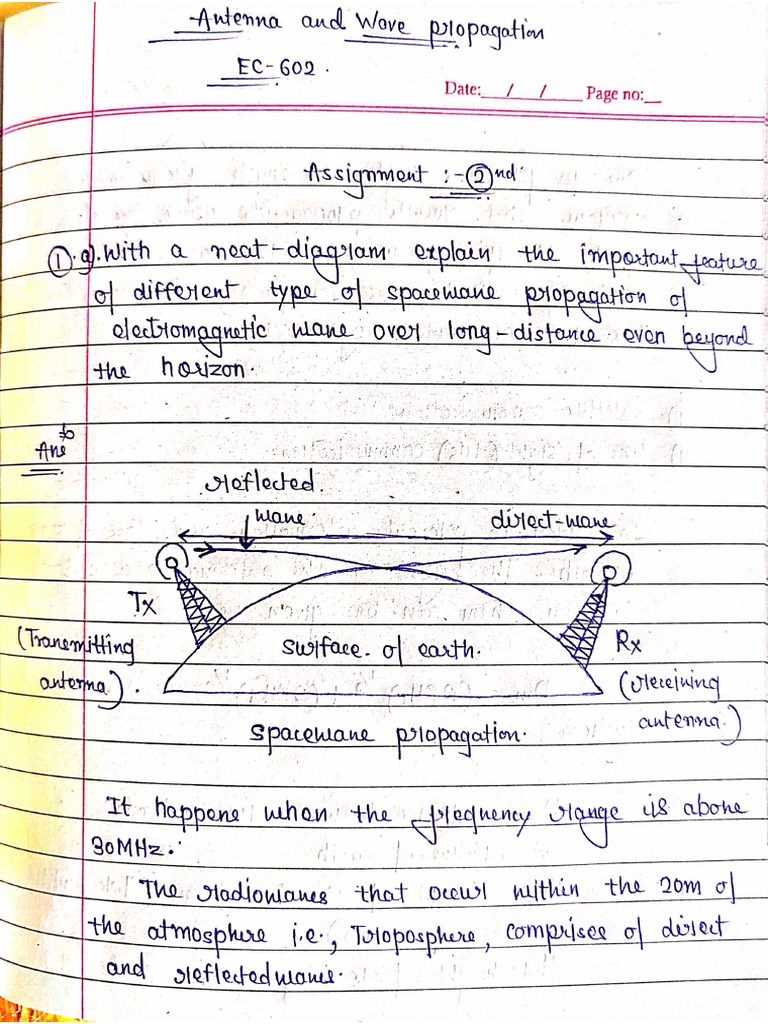 Antenna and Wave propagation
EC-602.
Date:__/__/__ Page no:__
Assignment :- ② nd.
①.a). With a neat-diagram explain the important feature
of different type of spacewave propagation of
electromagnetic wave over long-distance even beyond
the horizon.
Ans
reflected
wave.
direct-wave
Tx
(Transmitting
antenna).
surface of earth.
Rx
(receiving
antenna.)
spacewave propagation.
It happens when the frequency range is above
30MHz.
The radiowaves that occur within the 20m of
the atmosphere i.e., Troposphere, comprises of direct
and reflected waves.